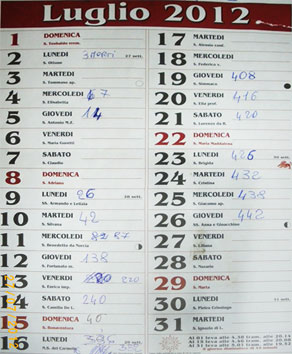 Luglio 2012
1 DOMENICA
S. Teobaldo erem.
2 LUNEDI 3 morti 27 sett.
S. Ottone
3 MARTEDI
S. Tommaso ap.
4 MERCOLEDI 7
S. Elisabetta
5 GIOVEDI 14
S. Antonio M.Z.
6 VENERDI
S. Maria Goretti
7 SABATO
S. Claudio
8 DOMENICA
S. Adriano
9 LUNEDI 26 28 sett.
SS. Armando e Letizia
10 MARTEDI 42
S. Silvana
11 MERCOLEDI 82 87
S. Benedetto da Norcia
12 GIOVEDI 138
S. Fortunato m.
13 VENERDI 270
S. Enrico imp.
14 SABATO 240
S. Camillo de Lellis
15 DOMENICA 40
S. Bonaventura
16 LUNEDI
B.V. del Carmelo
17 MARTEDI
S. Alessio conf.
18 MERCOLEDI
S. Federico v.
19 GIOVEDI 408
S. Simmaco
20 VENERDI 416
S. Elia prof.
21 SABATO 420
S. Lorenzo da B.
22 DOMENICA
S. Maria Maddalena
23 LUNEDI 426 30 sett.
S. Brigida
24 MARTEDI 432
S. Cristina
25 MERCOLEDI 438
S. Giacomo ap.
26 GIOVEDI 442
SS. Anna e Gioacchino
27 VENERDI
S. Liliana
28 SABATO
S. Nazario
29 DOMENICA
S. Marta
30 LUNEDI 31 sett.
S. Pietro Crisologo
31 MARTEDI
S. Ignazio di L.